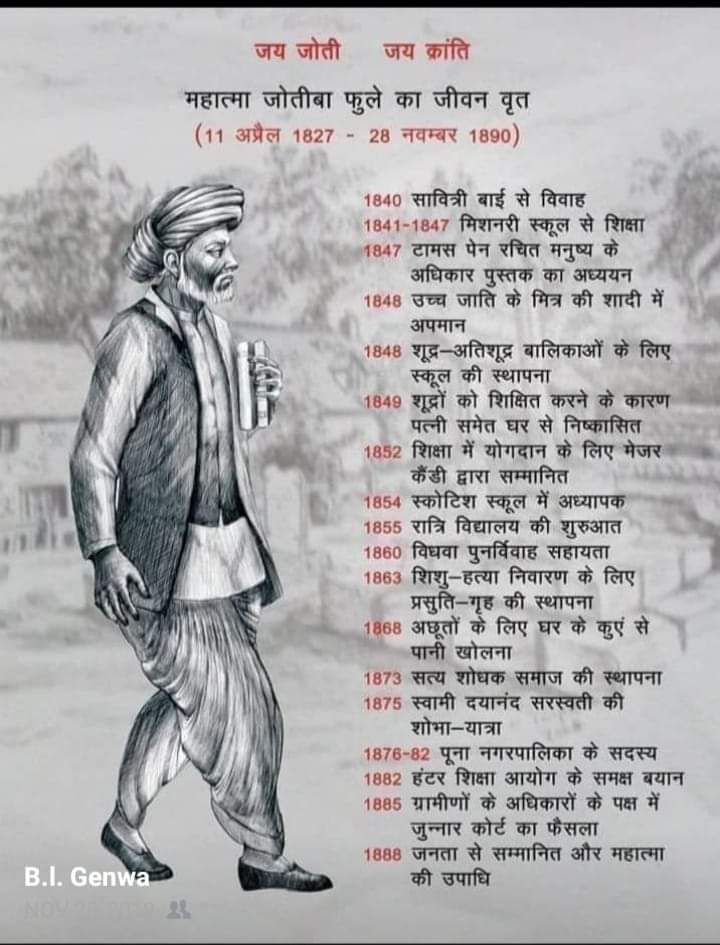 जय जोती जय क्रांति
महात्मा जोतीबा फुले का जीवन वृत
(11 अप्रैल 1827 - 28 नवम्बर 1890)
1840 सावित्री बाई से विवाह
1841-1847 मिशनरी स्कूल से शिक्षा
1847 टामस पेन रचित मनुष्य के
अधिकार पुस्तक का अध्ययन
1848 उच्च जाति के मित्र की शादी में
अपमान
1848 शूद्र–अतिशूद्र बालिकाओं के लिए
स्कूल की स्थापना
1849 शूद्रों को शिक्षित करने के कारण
पत्नी समेत घर से निष्कासित
1852 शिक्षा में योगदान के लिए मेजर
कैंडी द्वारा सम्मानित
1854 स्कोटिश स्कूल में अध्यापक
1855 रात्रि विद्यालय की शुरुआत
1860 विधवा पुनर्विवाह सहायता
1863 शिशु–हत्या निवारण के लिए
प्रसुति–गृह की स्थापना
1868 अछूतों के लिए घर के कुएं से
पानी खोलना
1873 सत्य शोधक समाज की स्थापना
1875 स्वामी दयानंद सरस्वती की
शोभा–यात्रा
1876-82 पूना नगरपालिका के सदस्य
1882 हंटर शिक्षा आयोग के समक्ष बयान
1885 ग्रामीणों के अधिकारों के पक्ष में
जुन्नार कोर्ट का फैसला
1888 जनता से सम्मानित और महात्मा
की उपाधि
B.l. Genwa